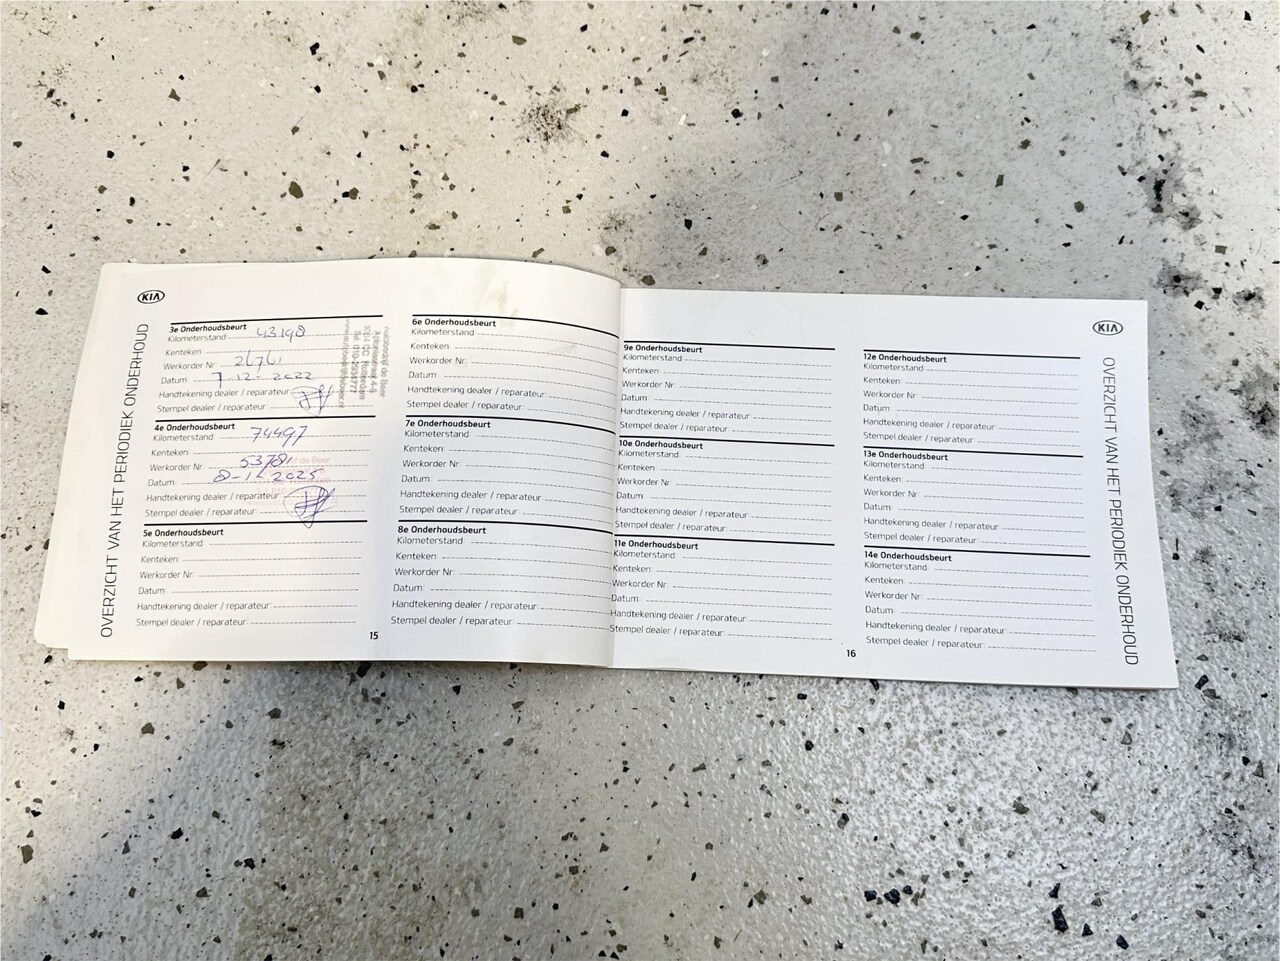 KIA
OVERZICHT VAN HET PERIODIEK ONDERHOUD
3e Onderhoudsbeurt
Kilometerstand 43198
Kenteken
Werkorder Nr: 26761
Datum 7-12-2022
Handtekening dealer / reparateur:
Stempel dealer / reparateur:
de Beer
Rotterdam
4e Onderhoudsbeurt
Kilometerstand 74497
Kenteken:
Werkorder Nr: 53781
Datum: 2025
Handtekening dealer / reparateur:
Stempel dealer / reparateur:
de Beer
5e Onderhoudsbeurt
Kilometerstand:
Kenteken:
Werkorder Nr:
Datum:
Handtekening dealer / reparateur:
Stempel dealer / reparateur:
15
6e Onderhoudsbeurt
Kilometerstand:
Kenteken:
Werkorder Nr:
Datum:
Handtekening dealer / reparateur:
Stempel dealer / reparateur:
7e Onderhoudsbeurt
Kilometerstand:
Kenteken:
Werkorder Nr:
Datum:
Handtekening dealer / reparateur:
Stempel dealer / reparateur:
8e Onderhoudsbeurt
Kilometerstand:
Kenteken:
Werkorder Nr:
Datum:
Handtekening dealer / reparateur:
Stempel dealer / reparateur:
9e Onderhoudsbeurt
Kilometerstand:
Kenteken:
Werkorder Nr:
Datum:
Handtekening dealer / reparateur:
Stempel dealer / reparateur:
10e Onderhoudsbeurt
Kilometerstand:
Kenteken:
Werkorder Nr:
Datum:
Handtekening dealer / reparateur:
Stempel dealer / reparateur:
11e Onderhoudsbeurt
Kilometerstand:
Kenteken:
Werkorder Nr:
Datum:
Handtekening dealer / reparateur:
Stempel dealer / reparateur:
16
12e Onderhoudsbeurt
Kilometerstand:
Kenteken:
Werkorder Nr:
Datum:
Handtekening dealer / reparateur:
Stempel dealer / reparateur:
13e Onderhoudsbeurt
Kilometerstand:
Kenteken:
Werkorder Nr:
Datum:
Handtekening dealer / reparateur:
Stempel dealer / reparateur:
14e Onderhoudsbeurt
Kilometerstand:
Kenteken:
Werkorder Nr:
Datum:
Handtekening dealer / reparateur:
Stempel dealer / reparateur:
KIA
OVERZICHT VAN HET PERIODIEK ONDERHOUD